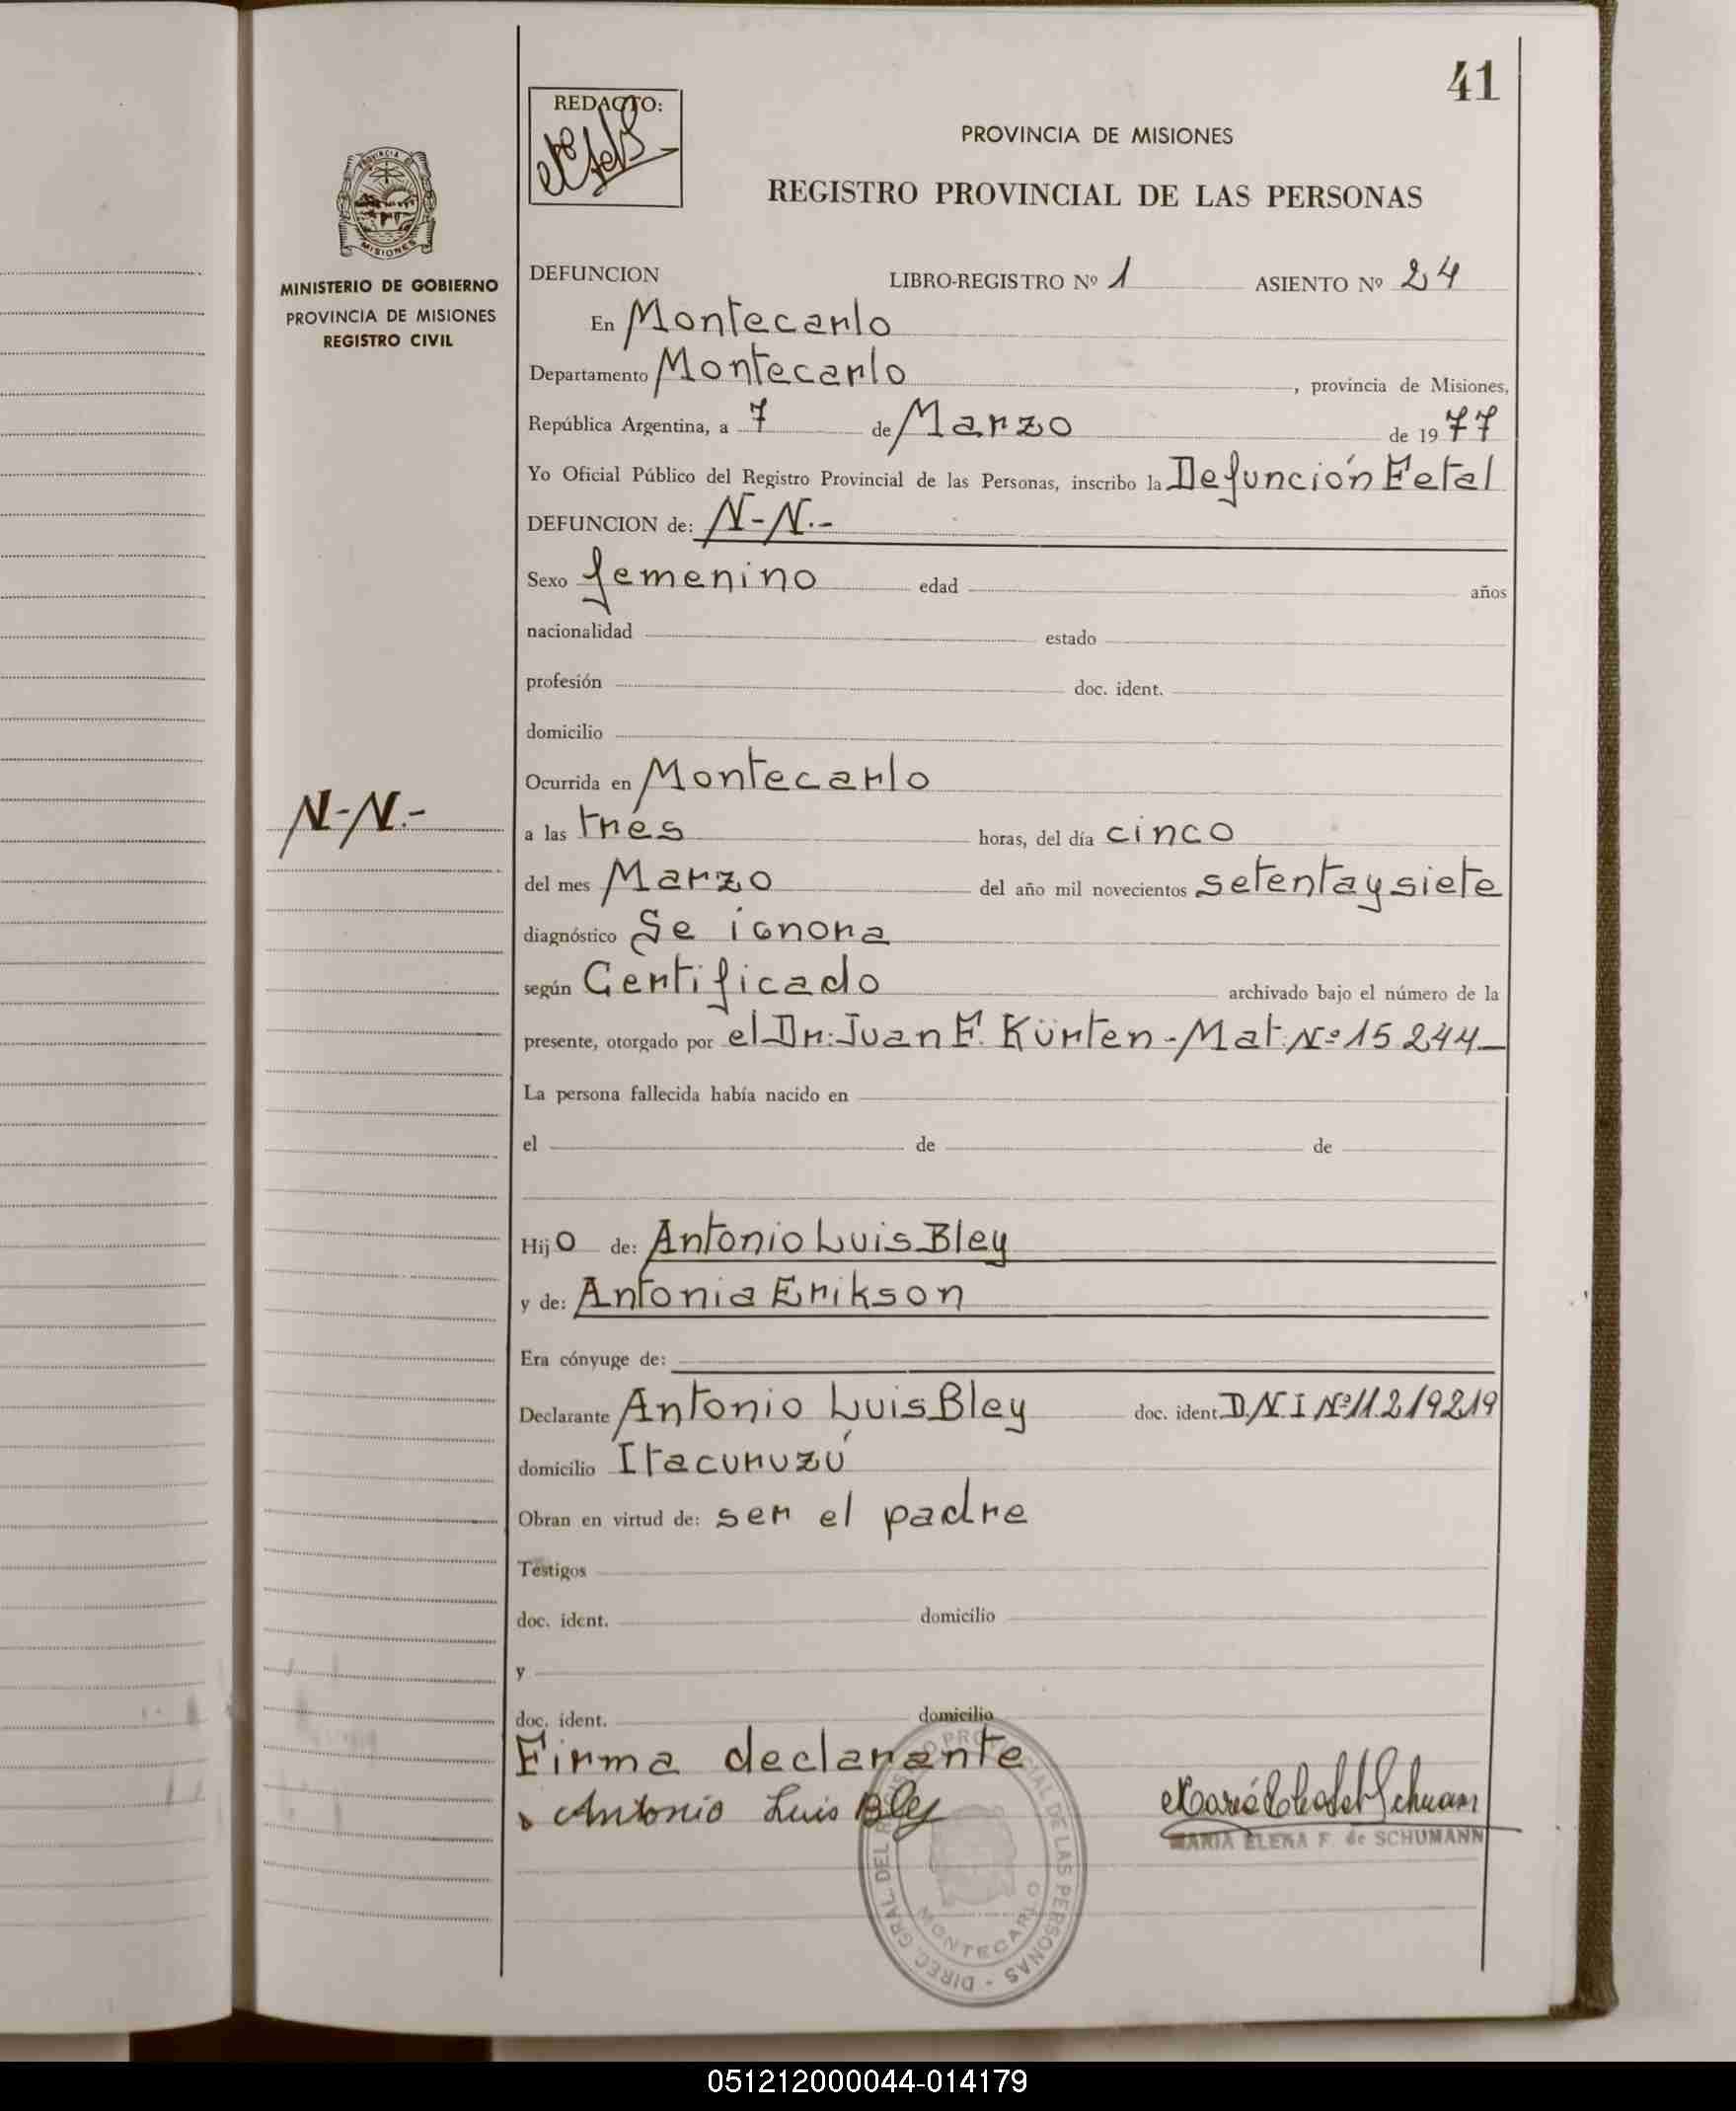 41
REDACTO:
PROVINCIA DE MISIONES
REGISTRO PROVINCIAL DE LAS PERSONAS
PROVINCIA DE
MISIONES
MINISTERIO DE GOBIERNO
PROVINCIA DE MISIONES
REGISTRO CIVIL
DEFUNCION LIBRO-REGISTRO Nº 1 ASIENTO Nº 24
En Montecarlo
Departamento Montecarlo, provincia de Misiones,
República Argentina, a 7 de Marzo de 1977
Yo Oficial Público del Registro Provincial de las Personas, inscribo la Defunción Fetal
DEFUNCION de: N-N.-
Sexo femenino edad años
nacionalidad estado
profesión doc. ident.
domicilio
Ocurrida en Montecarlo
N-N.-
a las tres horas, del día cinco
del mes Marzo del año mil novecientos setenta y siete
diagnóstico Se ignora
según Certificado archivado bajo el número de la
presente, otorgado por el Dr: Juan F. Kürten - Mat. Nº 15244
La persona fallecida había nacido en
el de de
Hijo de: Antonio Luis Bley
y de: Antonia Erikson
Era cónyuge de:
Declarante Antonio Luis Bley doc. ident. D.N.I Nº 11219219
domicilio Itacuruzú
Obran en virtud de: ser el padre
Testigos
doc. ident. domicilio
y
doc. ident. domicilio
Firma declarante
Antonio Luis Bley
MARIA ELENA F. de SCHUMANN
DIREC. GRAL. DEL REGISTRO PROVINCIAL DE LAS PERSONAS -
MONTECARLO
051212000044-014179